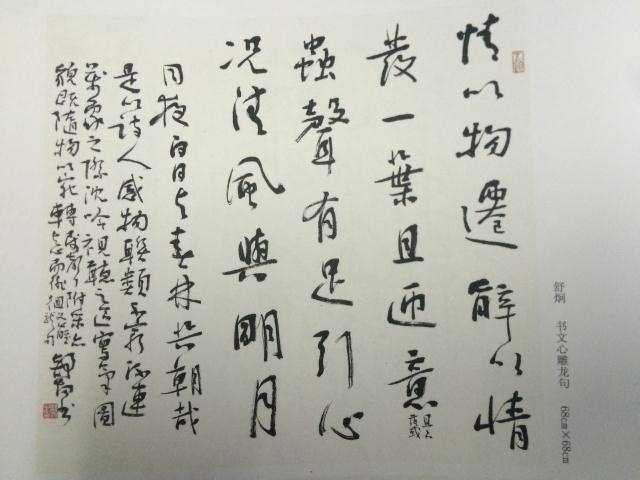 情以物遷辭以情
發一葉且迎意
且下落或
蟲聲有足引心
況清風與明月
同夜白日与春林共朝哉
是以詩人感物聯類不窮流連
萬象之際沈吟視聽之區寫氣圖
貌既隨物以宛轉
舒炯书
舒炯 书文心雕龙句 68cm×68cm